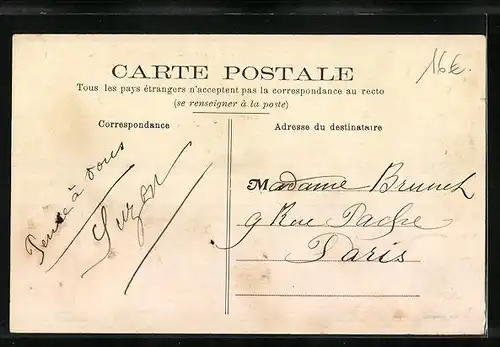 16€.
CARTE POSTALE
Tous les pays étrangers n'acceptent pas la correspondance au recto
(se renseigner à la poste)
Correspondance
Adresse du destinataire
Pense à vous
Suzon
Madame Brunet
9 Rue Pache
Paris